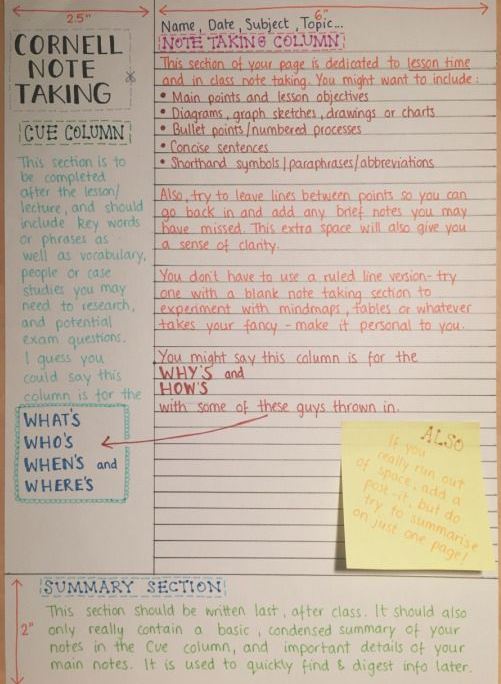 2.5"
6"
CORNELL
NOTE
TAKING
CUE COLUMN
This section is to
be completed
after the lesson/
lecture, and should
include key words
or phrases as
well as vocabulary,
people or case
studies you may
need to research,
and potential
exam questions.
I guess you
could say this
column is for the
WHAT'S
WHO'S
WHEN'S and
WHERE'S
Name, Date, Subject, Topic...
NOTE TAKING COLUMN
This section of your page is dedicated to lesson time
and in class note taking. You might want to include:
• Main points and lesson objectives
• Diagrams, graph sketches, drawings or charts
• Bullet points/numbered processes
• Concise sentences
• Shorthand symbols/paraphrases/abbreviations
Also, try to leave lines between points so you can
go back in and add any brief notes you may
have missed. This extra space will also give you
a sense of clarity.
You don't have to use a ruled line version- try
one with a blank note taking section to
experiment with mindmaps, tables or whatever
takes your fancy - make it personal to you.
You might say this column is for the
WHY'S and
HOW'S
with some of these guys thrown in.
ALSO
If you
really run out
of space, add a
post-it, but do
try to summarise
on just one page!
2"
SUMMARY SECTION
This section should be written last, after class. It should also
only really contain a basic, condensed summary of your
notes in the Cue column, and important details of your
main notes. It is used to quickly find & digest info later.